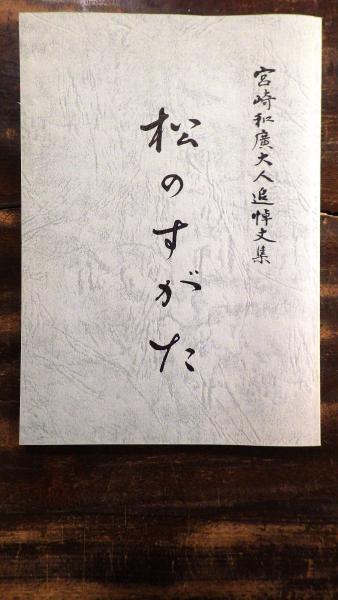 宮崎和廣大人追悼文集
松のすがた